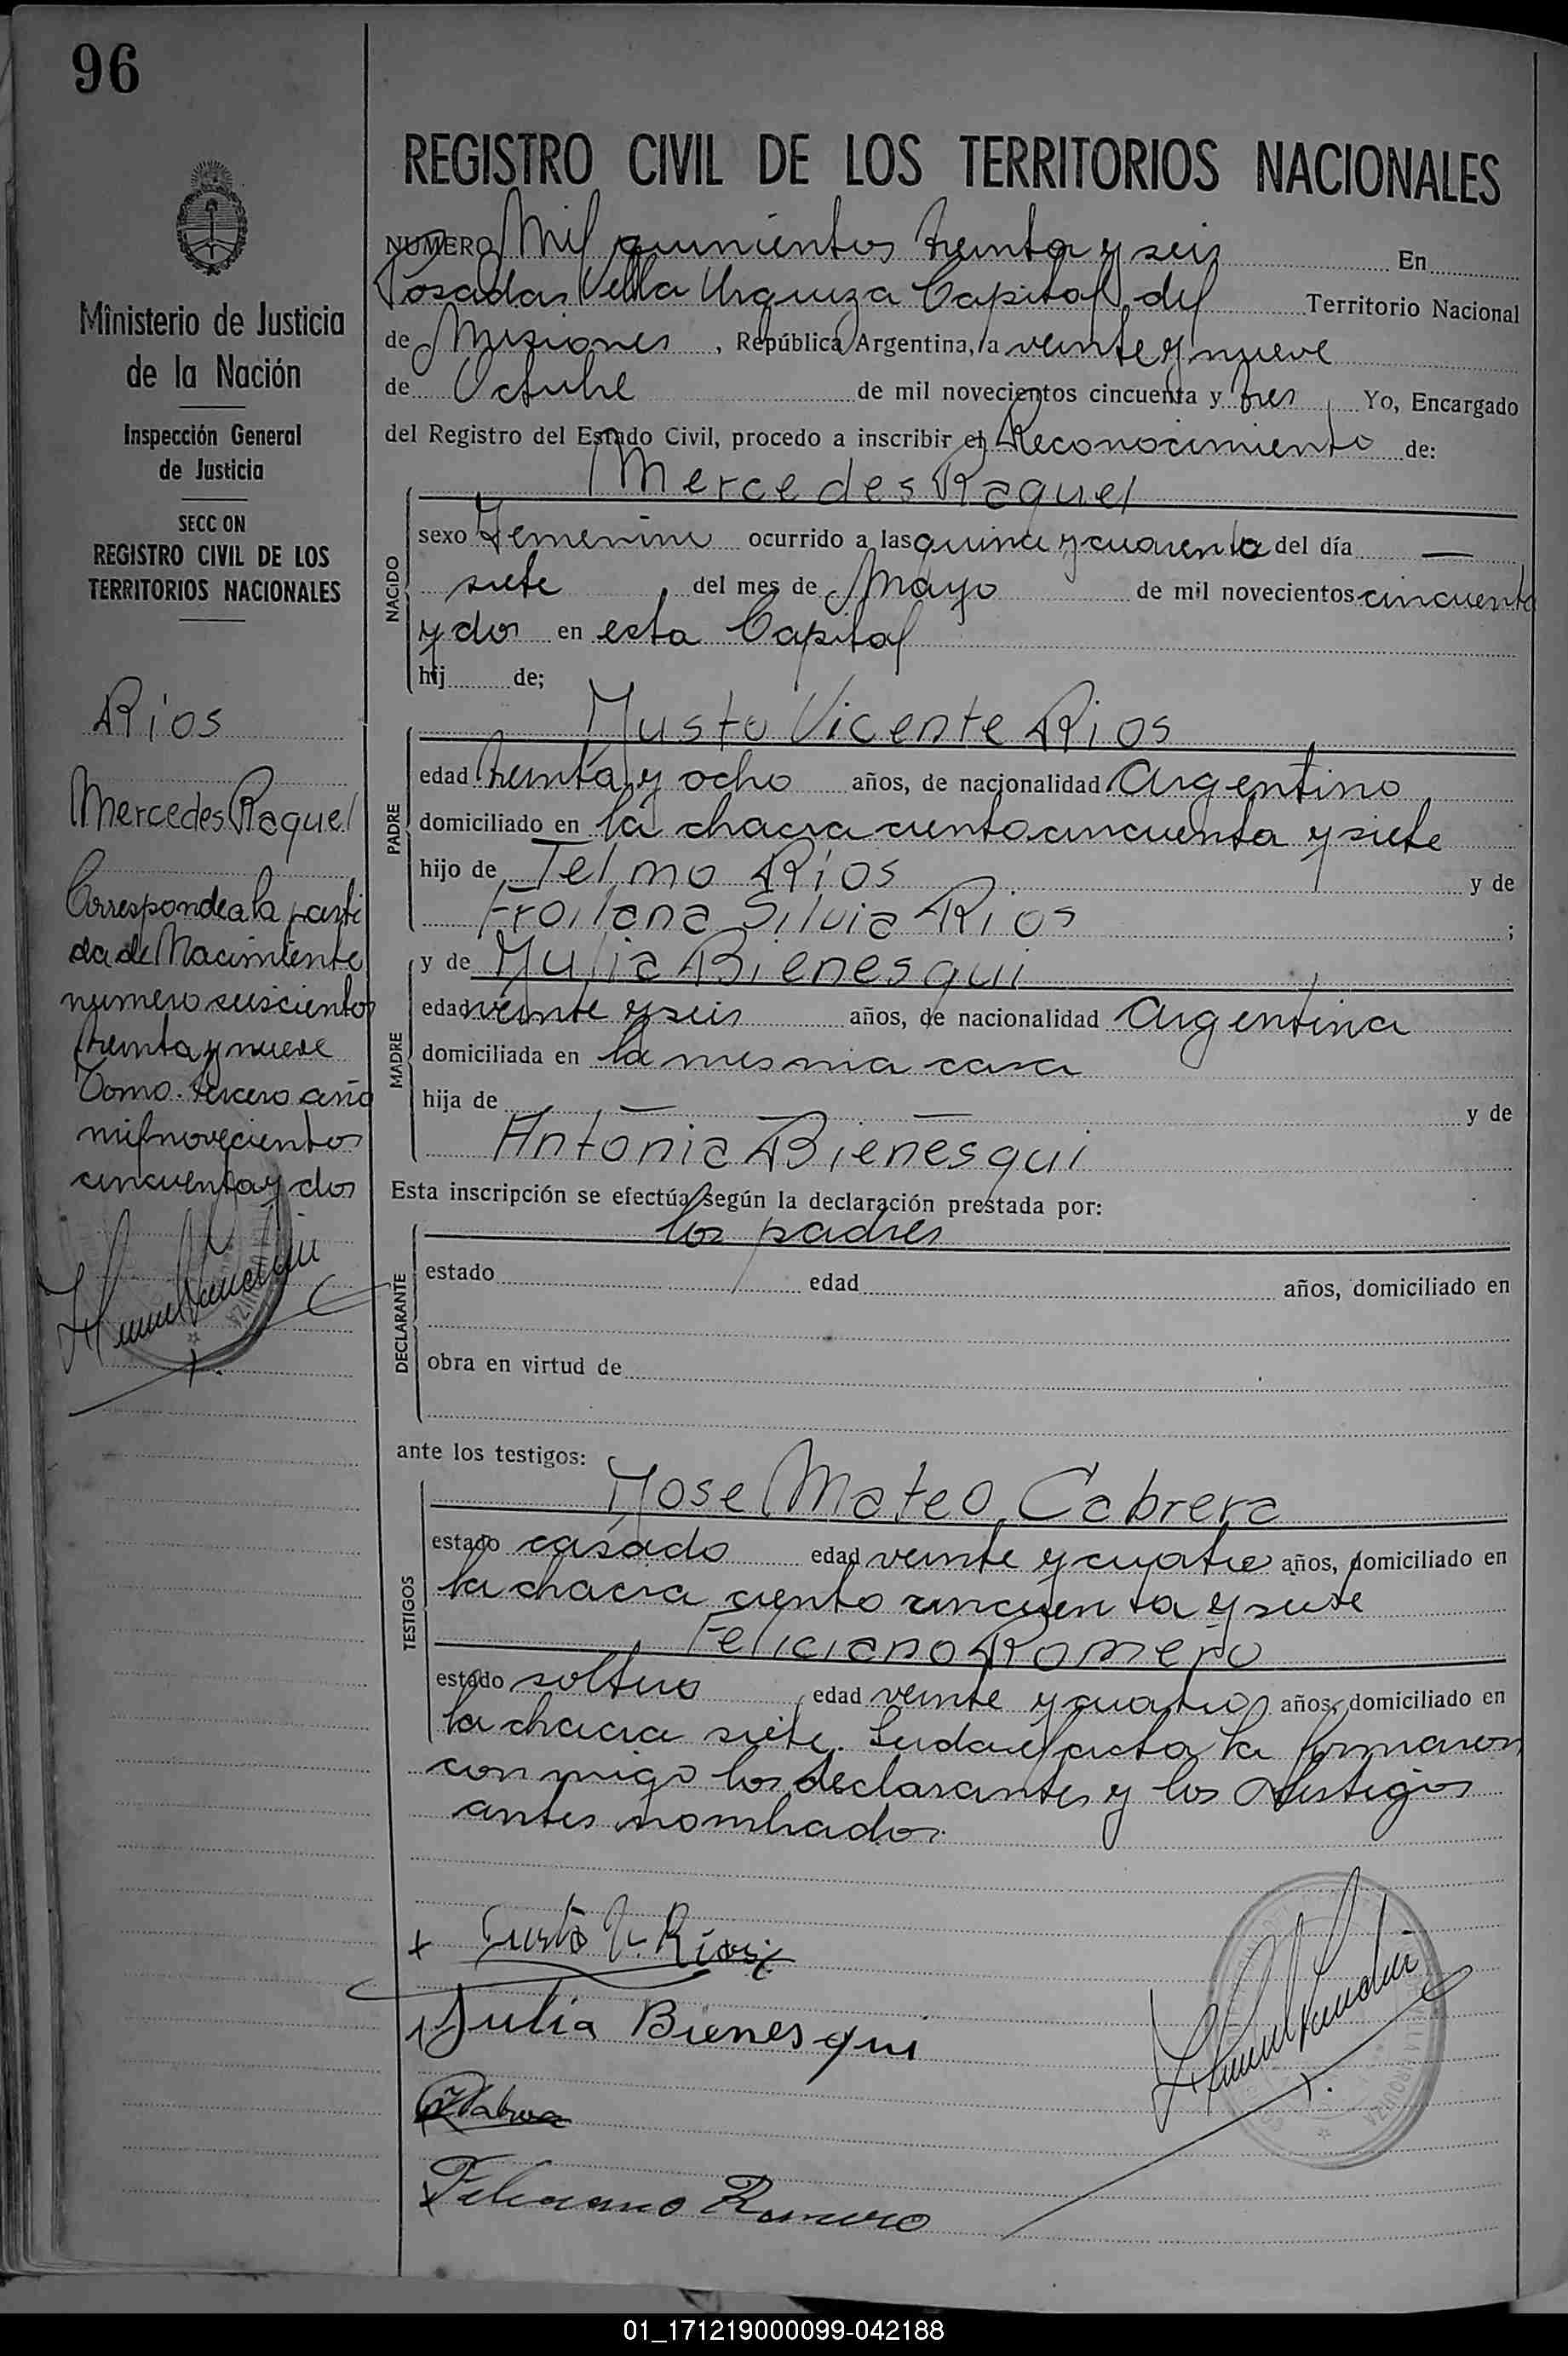 96
REGISTRO CIVIL DE LOS TERRITORIOS NACIONALES
Ministerio de Justicia
de la Nación
Inspección General
de Justicia
SECC ON
REGISTRO CIVIL DE LOS
TERRITORIOS NACIONALES
Rios
Mercedes Raquel
Corresponde a la parti
da de Nacimiento
numero seiscientos
treinta y nueve
Tomo. tercero año
mil novecientos
cincuenta y dos
NUMERO Mil quinientos treinta y seis En
Posadas Villa Urquiza Capital del Territorio Nacional
de Misiones, República Argentina, a veinte y nueve
de Octubre de mil novecientos cincuenta y tres Yo, Encargado
del Registro del Estado Civil, procedo a inscribir el Reconocimiento de:
Mercedes Raquel
NACIDO
sexo Femenino ocurrido a las quince y cuarenta del día —
siete del mes de Mayo de mil novecientos cincuenta
y dos en esta Capital
hij de;
Justo Vicente Rios
PADRE
edad treinta y ocho años, de nacionalidad Argentino
domiciliado en la chacra ciento cincuenta y siete
hijo de Telmo Rios y de
Froilana Silvia Rios ;
y de Julia Bienesqui
MADRE
edad veinte y seis años, de nacionalidad Argentina
domiciliada en la misma casa
hija de — — y de
Antonia Bienesqui
Esta inscripción se efectúa según la declaración prestada por:
los padres
DECLARANTE
estado edad años, domiciliado en
obra en virtud de
ante los testigos:
Jose Mateo Cabrera
TESTIGOS
estado casado edad veinte y cuatro años, domiciliado en
la chacra ciento cincuenta y siete
Feliciano Romero
estado soltero edad veinte y cuatro años, domiciliado en
la chacra siete. Leida el acta la firmaron
con migo los declarantes y los testigos
antes nombrados.
Justo V. Rios
Julia Bienesqui
Feliciano Romero
01_171219000099-042188